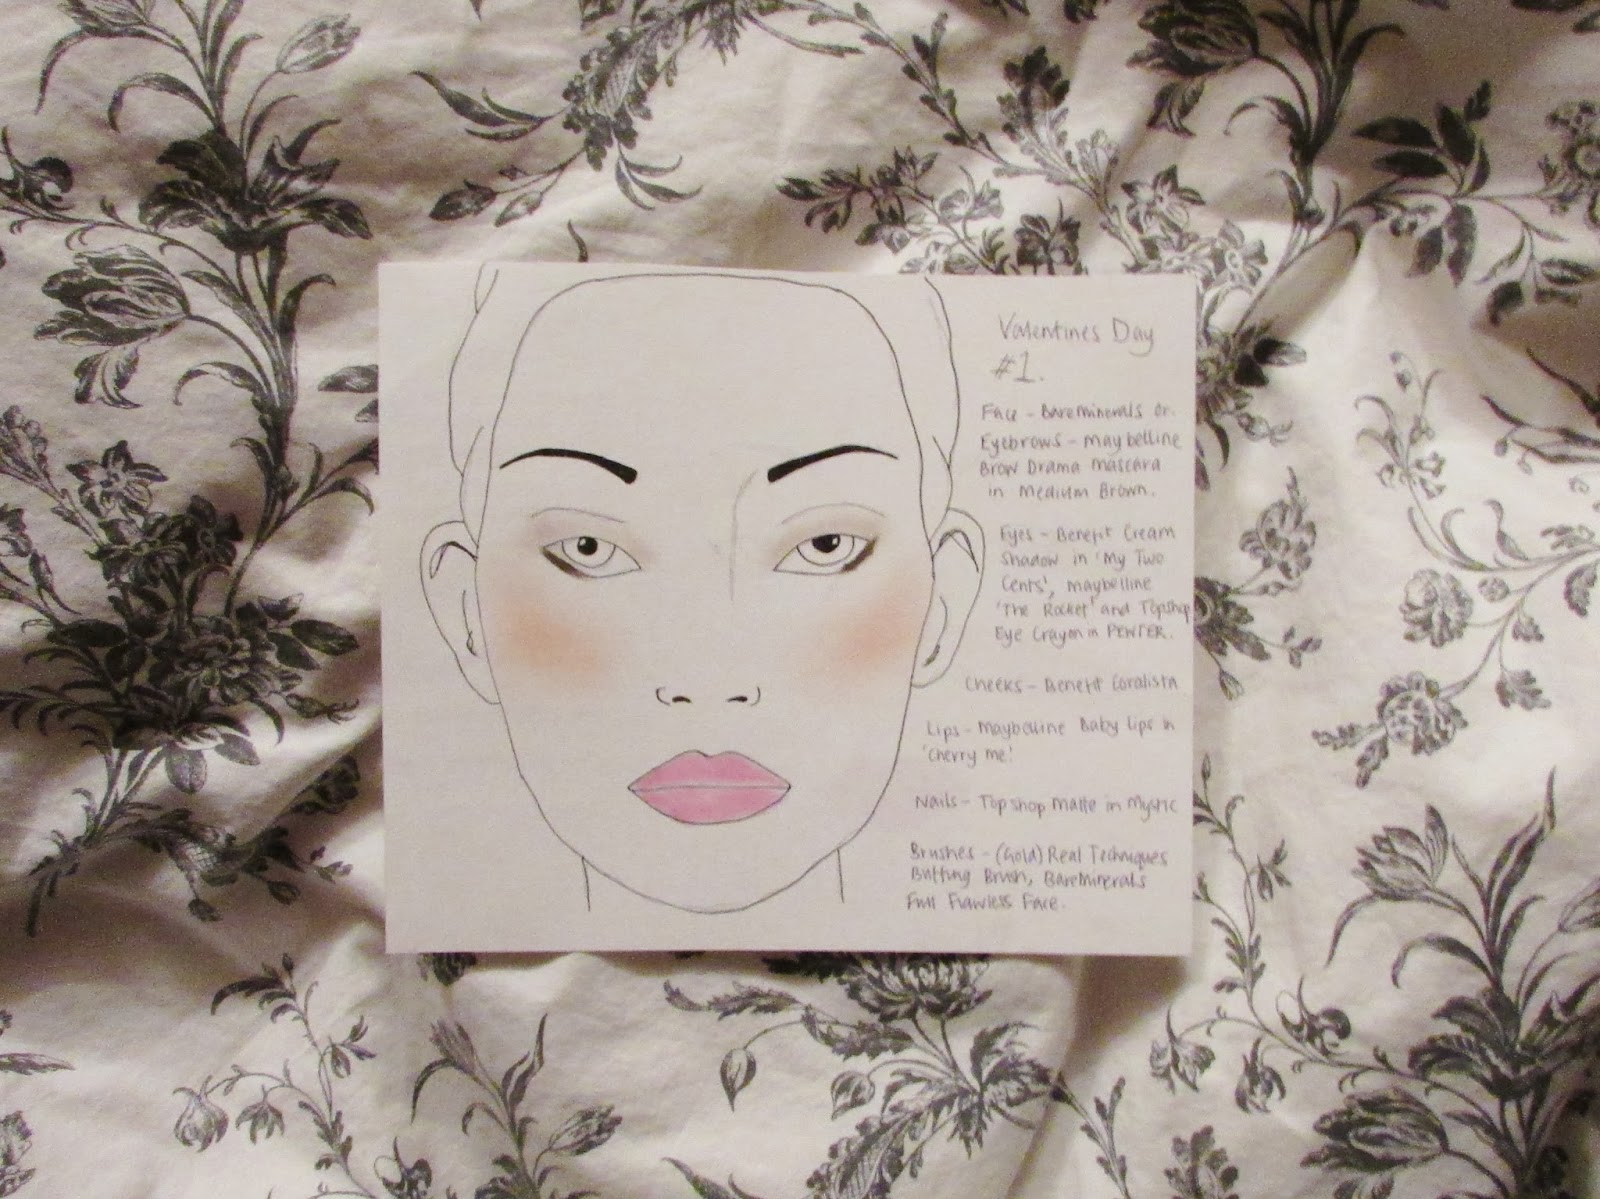 Valentines Day
#1.
Face - Bareminerals or.
Eyebrows - maybelline
Brow Drama mascara
in Medium Brown.
Eyes - Benefit Cream
Shadow in 'My Two
Cents', maybelline
'The Rocket' and Topshop
Eye Crayon in PEWTER.
Cheeks - Benefit Coralista
Lips - Maybelline Baby Lips in
'Cherry me'.
Nails - Topshop Matte in Mystic
Brushes - (Gold) Real Techniques
Buffing Brush, Bareminerals
Full Flawless Face.